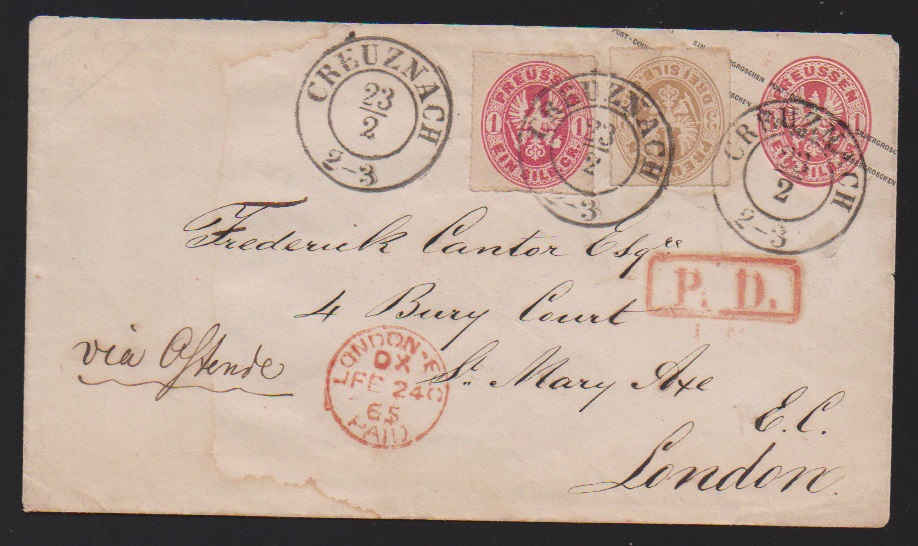 POST-COU EIN
BERGROSCHEN
CREUZNACH
23/2
2-3
PREUSSEN
1 1
EIN SILBGR
CREUZNACH
23/2
2-3
3
DREI SILB
PREU
PREUSSEN
1
EIN SILB
CREUZNACH
2
2-3
Frederick Cantor Esqre
P. D.
4 Bury Court
via Ostende
LONDON-EC
OX
FE 24
65
PAID
St. Mary Axe
E.C.
London